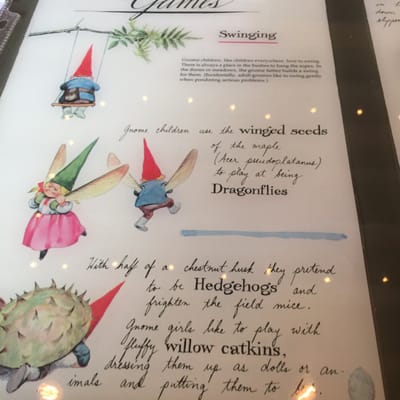 Games
Swinging
Gnome children, like children everywhere, love to swing.
There is always a place in the bushes to hang the ropes. In
the dunes or meadows, the gnome father builds a swing
for them. (Incidentally, adult gnomes like to swing gently
when pondering serious problems.)
Gnome children use the winged seeds
of the maple
(Acer pseudoplatanus)
to play at being
Dragonflies
With half of a chestnut husk they pretend
to be Hedgehogs and
frighten the field mice.
Gnome girls like to play with
fluffy willow catkins,
dressing them up as dolls or an-
imals and putting them to